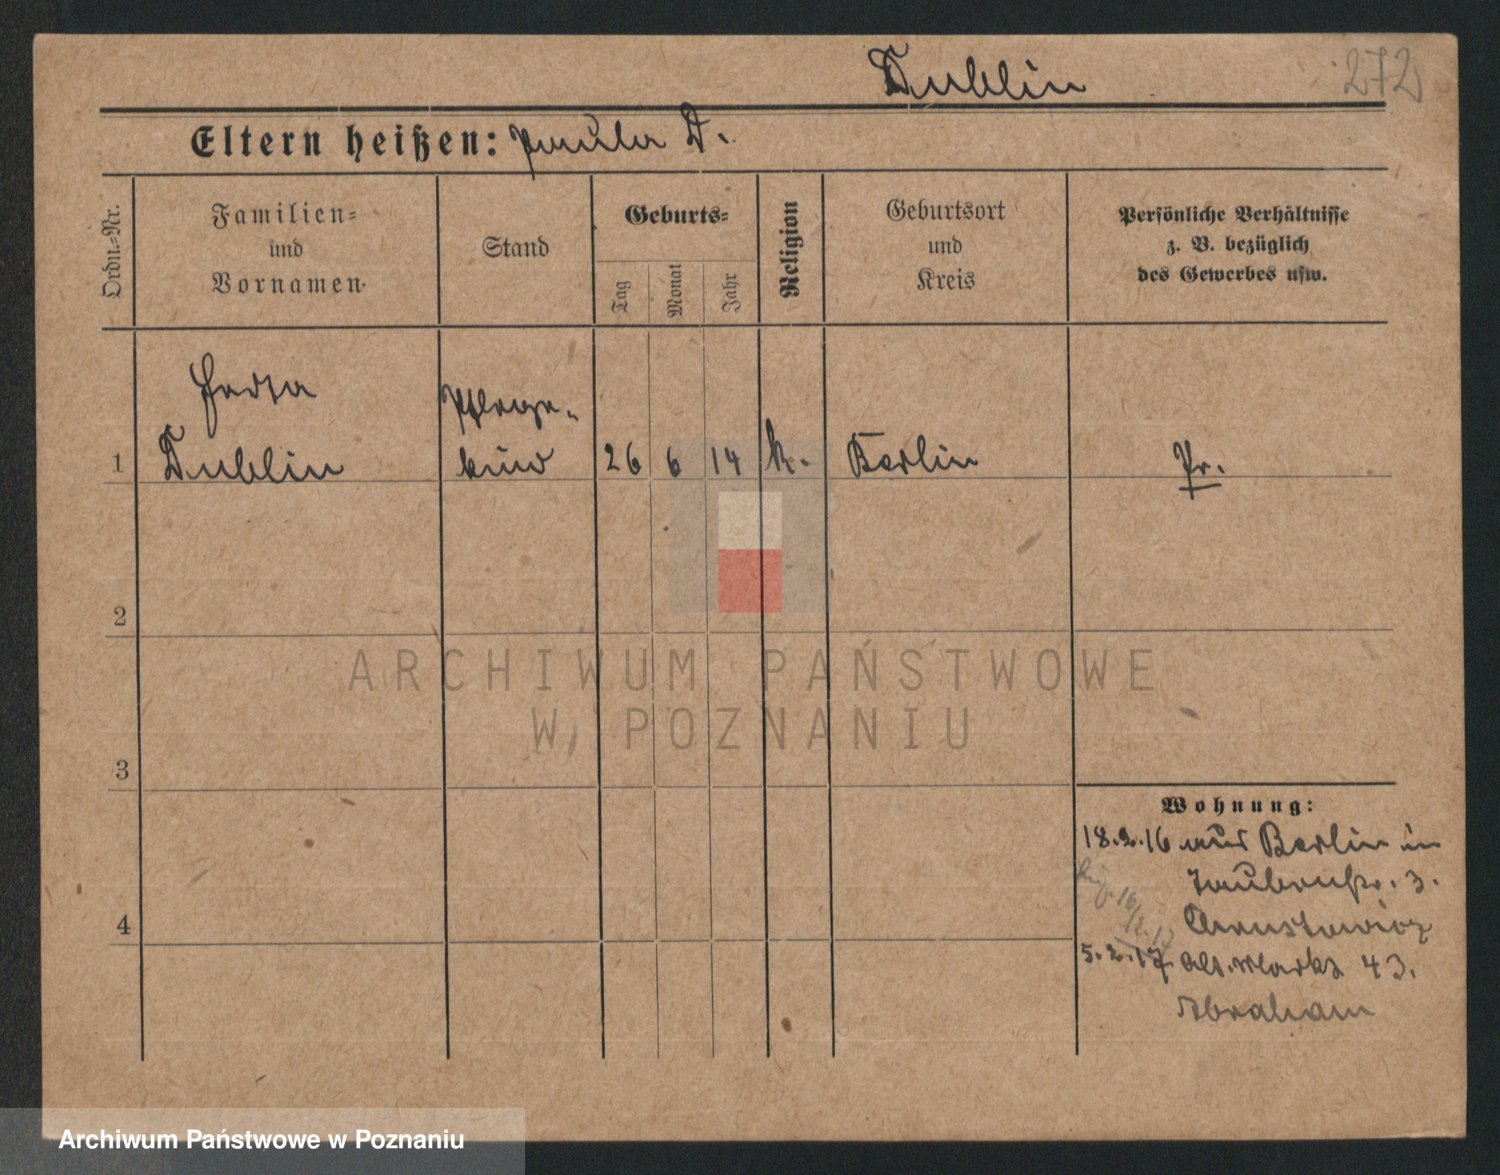 Dublin
272
Eltern heißen: Paula D.
Ordn.=Nr.
Familien=
und
Vornamen
Stand
Geburts=
Tag
Monat
Jahr
Religion
Geburtsort
und
Kreis
Persönliche Verhältnisse
z. B. bezüglich
des Gewerbes usw.
1
Dublin
Pflege-
kind
26 6 14 k.
Berlin
Pr.
2
3
4
Wohnung:
18.2.16 aus Berlin in
Taubenstr. 3.
5.2.17 Alt. Markt 43.
Abraham
ARCHIWUM PAŃSTWOWE
W POZNANIU
Archiwum Państwowe w Poznaniu